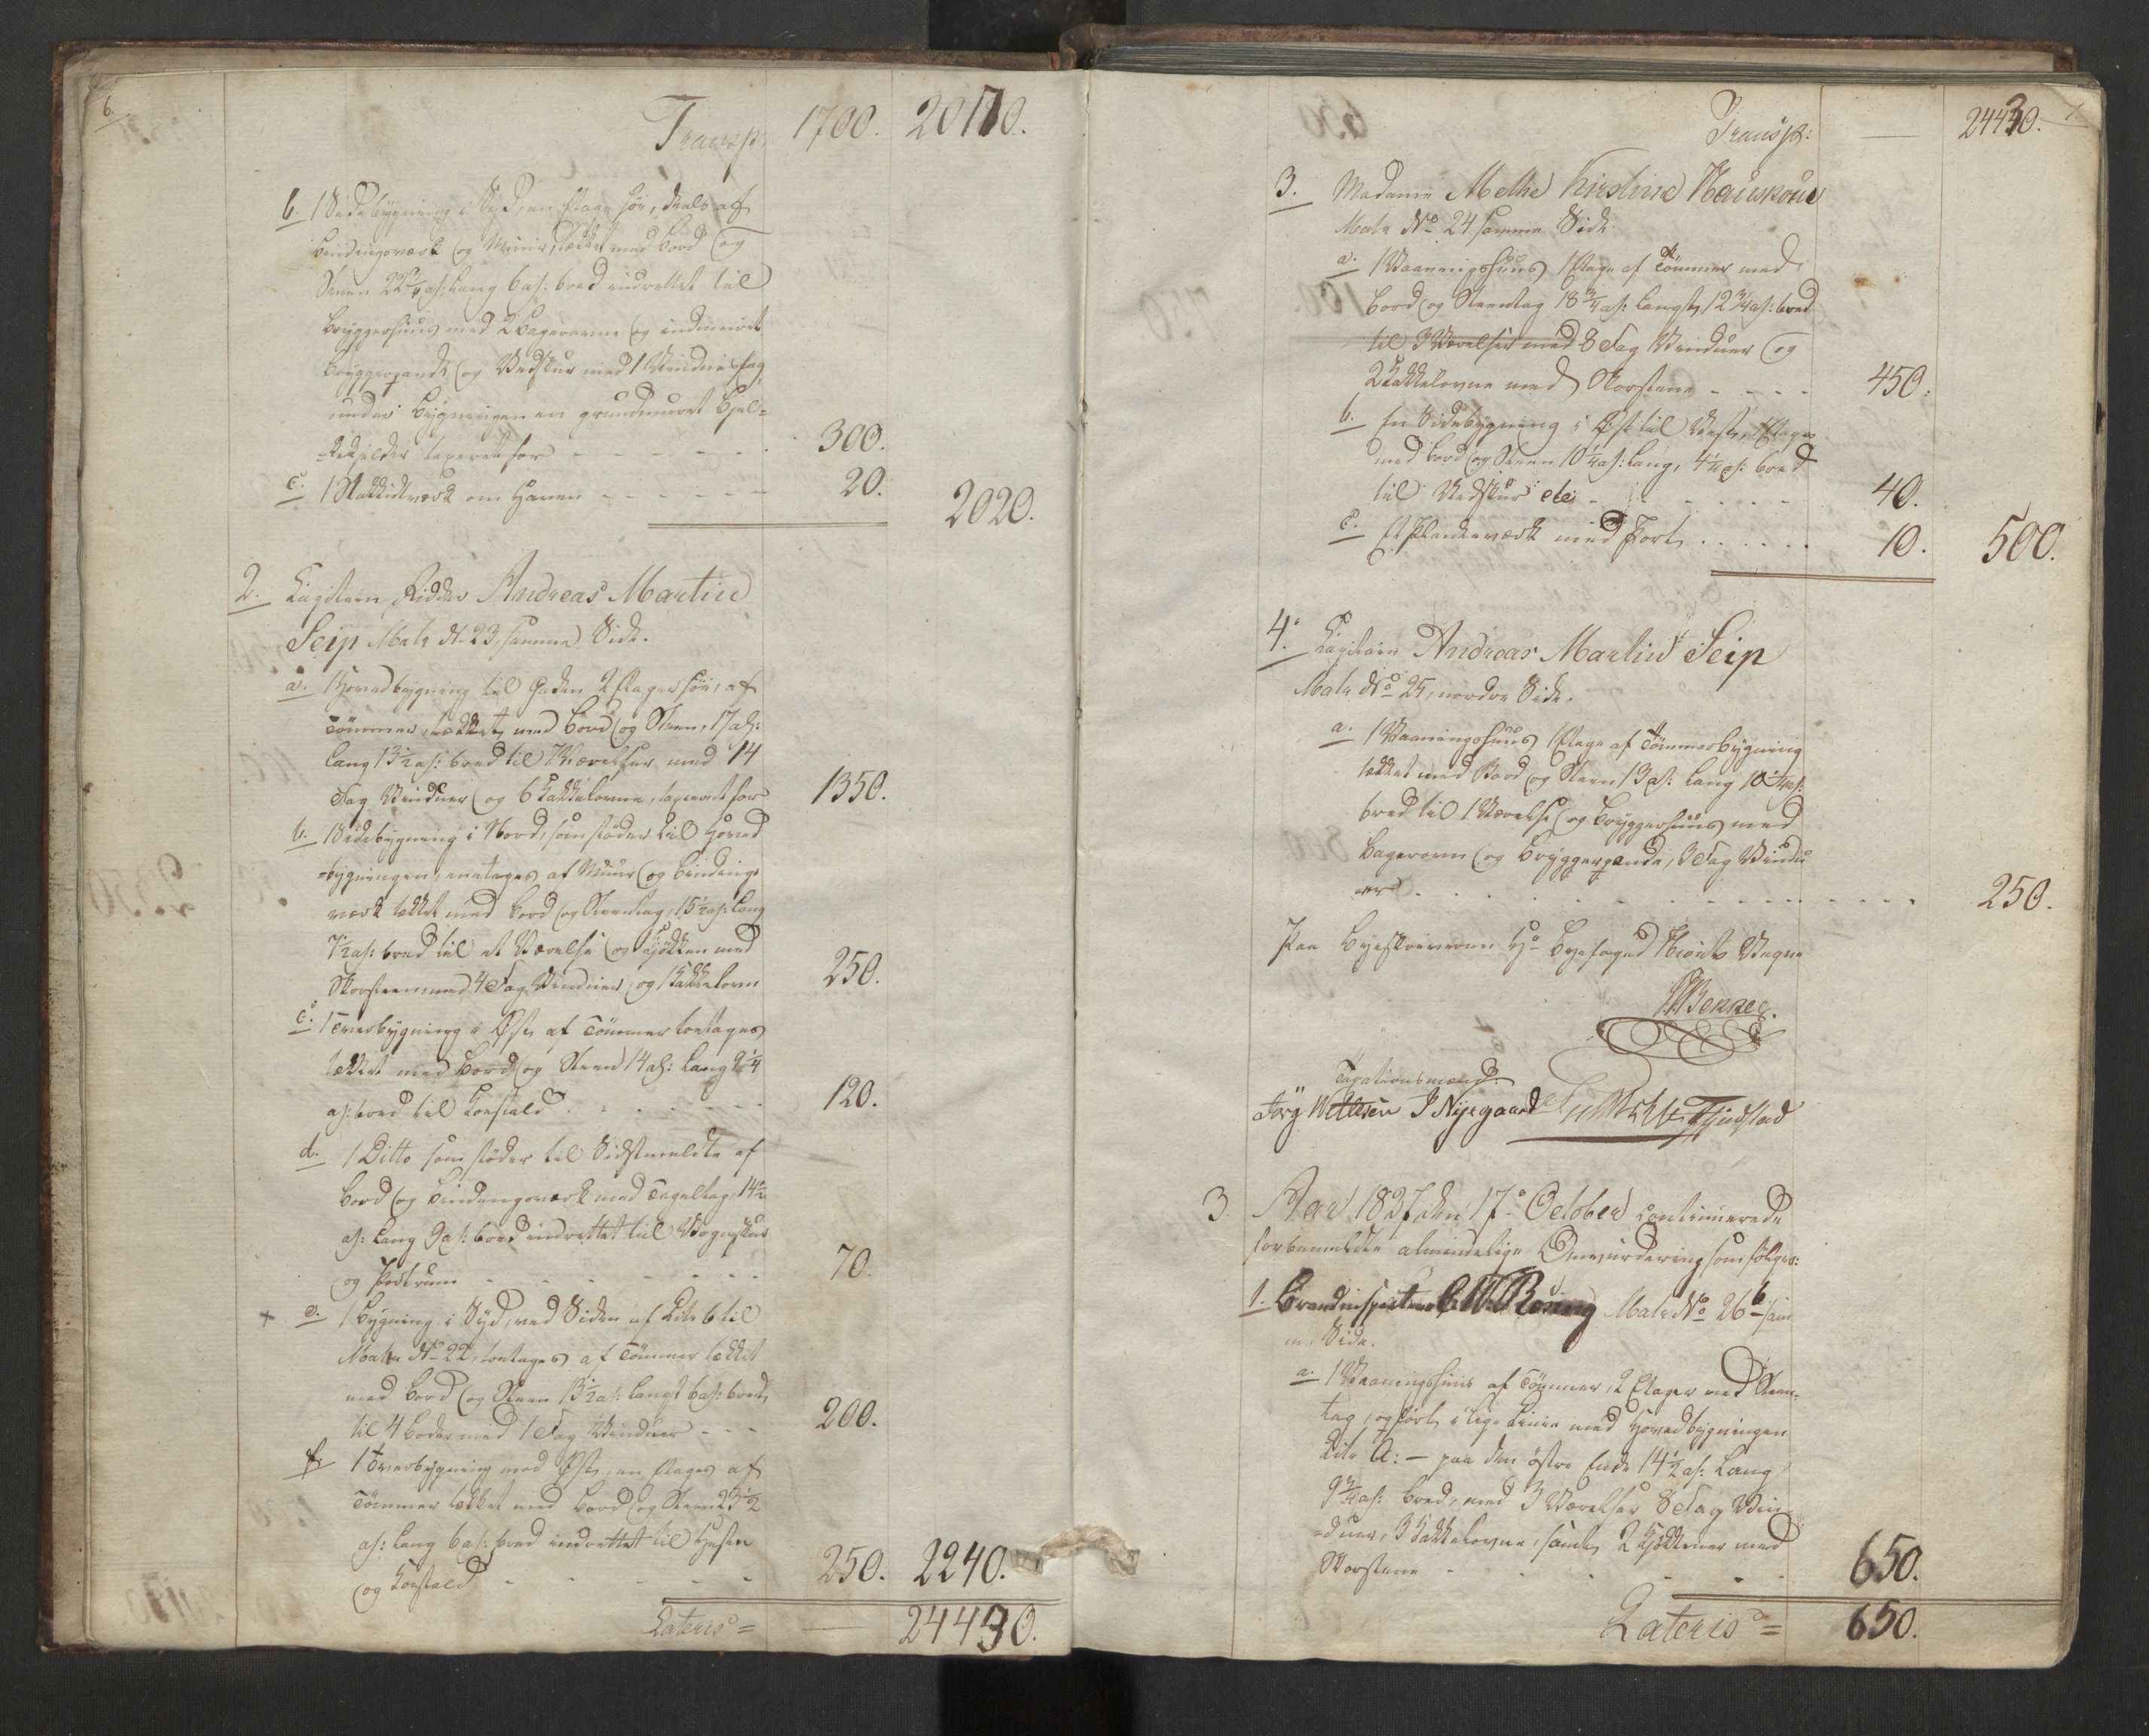 6.
Transp. 1700. 20170.
b. 1 Sidebygning i Syd, en Etage høi, deels af
Bindingsværk og Muur, tækket med Bord og
Steen 22 3/4 al: lang 6 al: bred indrettet til
Bryggerhuus med 2 Bagerovne og indmuret
Bryggerpande og Vedskur med 1 Vindue fag
under Bygningen en grundmuret
Kjelder taxeret for - - - 300.
c. 1 Stakkidtværk om Haven - - - 20. 2020.
2. Capitain, Ridder Andreas Martin
Seip Matr No 23, samme Side.
a. 1 Hovedbygning til Gaden 2 Etager høi, af
Tömmer, tækket med Bord og Steen, 17 al:
lang 13 1/2 al: bred til 7 Værelser med 14
Fag Vinduer og 6 Kakkelovne, taxeret for 1350.
b. 1 Sidebygning i Nord, som støder til Hoved
=bygningen, een etages af Muur og Bindings
værk tækket med Bord og Steentag, 15 1/2 al: lang
7 1/2 al: bred til et Værelse og Kjøkken med
Skorsteen med 4 Fag Vinduer og 1 Kakkelovn 250.
c. 1 Tverbygning i Øst, af Tömmer toetages
tækket med Bord og Steen 14 al: lang 9 1/4
al: bred til Koestald - - - 120.
d. 1 Ditto som støder til Sidstmeldte af
Bord og Bindingsværk med Tegeltag, 14 1/2
al: lang 9 al: bred indrettet til Vognskur
og Portrum - - - 70.
+ e. 1 Bygning i Syd, ved Siden af Litr b til
Matr No 22, toetages af Tömmer tækket
med Bord og Steen 13 1/2 al: langt 6 al: bredt,
til 4 Boder med 1 Fag Vinduer - - - 200.
f. 1 Tverbygning mod Øst, en Etages af
Tömmer tækket med Bord og Steen 23 1/2
al: lang 6 al: bred indrettet til
og Koestald - - - 250. 2240.
Lateris = — 24430.
7
Transp: — 24430.
3. Madame Methe Kirstine
Matr No 24 samme Side
a. 1 Vaaningshuus 1 Etage af Tömmer med
Bord og Steentag 18 3/4 al: langt, 12 3/4 al: bred
til 3 Værelser med 8 Fag Vinduer og
2 Kakkelovne med Skorstene - - - - 450.
b. En Sidebygning i Øst til Vest, 1 Etages
med Bord og Steen 10 1/4 al: lang, 4 1/4 al: bred
til Vedskur etc - - - 40.
c. Et Plankeværk med Port - - - 10. 500.
4. Capitain Andreas Martin Seip
Matr No 25, nordre Side.
a. 1 Vaaningshuus 1 Etage af Tömmerbygning
tækket med Bord og Steen 13 al: lang 10 1/4 al:
bred til 1 Værelse og Bryggerhuus med
Bagerovn og Bryggerpande, 3 Fag Vindu
er - - - 250.
Paa Byeskriveren Hr Byefoged Vegne
Taxationsmænd:
J Nyegaard Tjudstad
3. Aar 1827 den 17de October continuerede
forbemeldte almindelige Omvurdering som følger:
1. Brandinspecteur Matr No 26 b sam
me Side.
a. 1 Vaaningshuus af Tömmer, 2 Etager med Steen-
tag, opført i lige Linie med Hovedbygningen
Litr A: — paa den østre Ende 14 1/2 al: lang
9 3/4 al: bred, med 3 Værelser 8 Fag Vin-
=duer, 3 Kakkelovne, samt 2 Kjøkkener med
Skorstene - - - 650.
Lateris = 650.